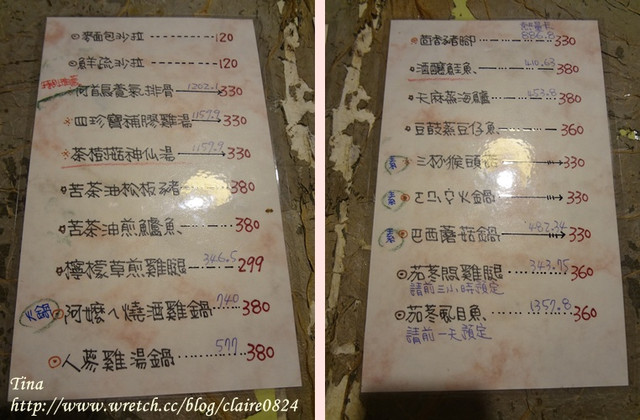 麥面包沙拉 120
鮮蔬沙拉 120
何首烏養氣排骨 1202.1 330
四珍寶補膠雞湯 1157.9 330
茶樹菇神仙湯 1157.9 330
苦茶油松板豬 380
苦茶油煎鱸魚 380
檸檬草煎雞腿 346.5 299
火鍋 阿嬤ㄟ燒酒雞鍋 740 380
人蔘雞湯鍋 577 380
熱量表
茴香豬腳 882.8 330
酒釀鮭魚 410.63 380
天麻蒸海鱸 453.8 380
豆鼓蒸豆仔魚 360
素 三杯猴頭菇 330
素 ㄛ凸空火鍋 330
素 巴西蘑菇鍋 482.34 330
茄苳燜雞腿 343.75 360
請前三小時預定
茄苳虱目魚 1357.8 360
請前一天預定
Tina
http://www.wretch.cc/blog/claire0824